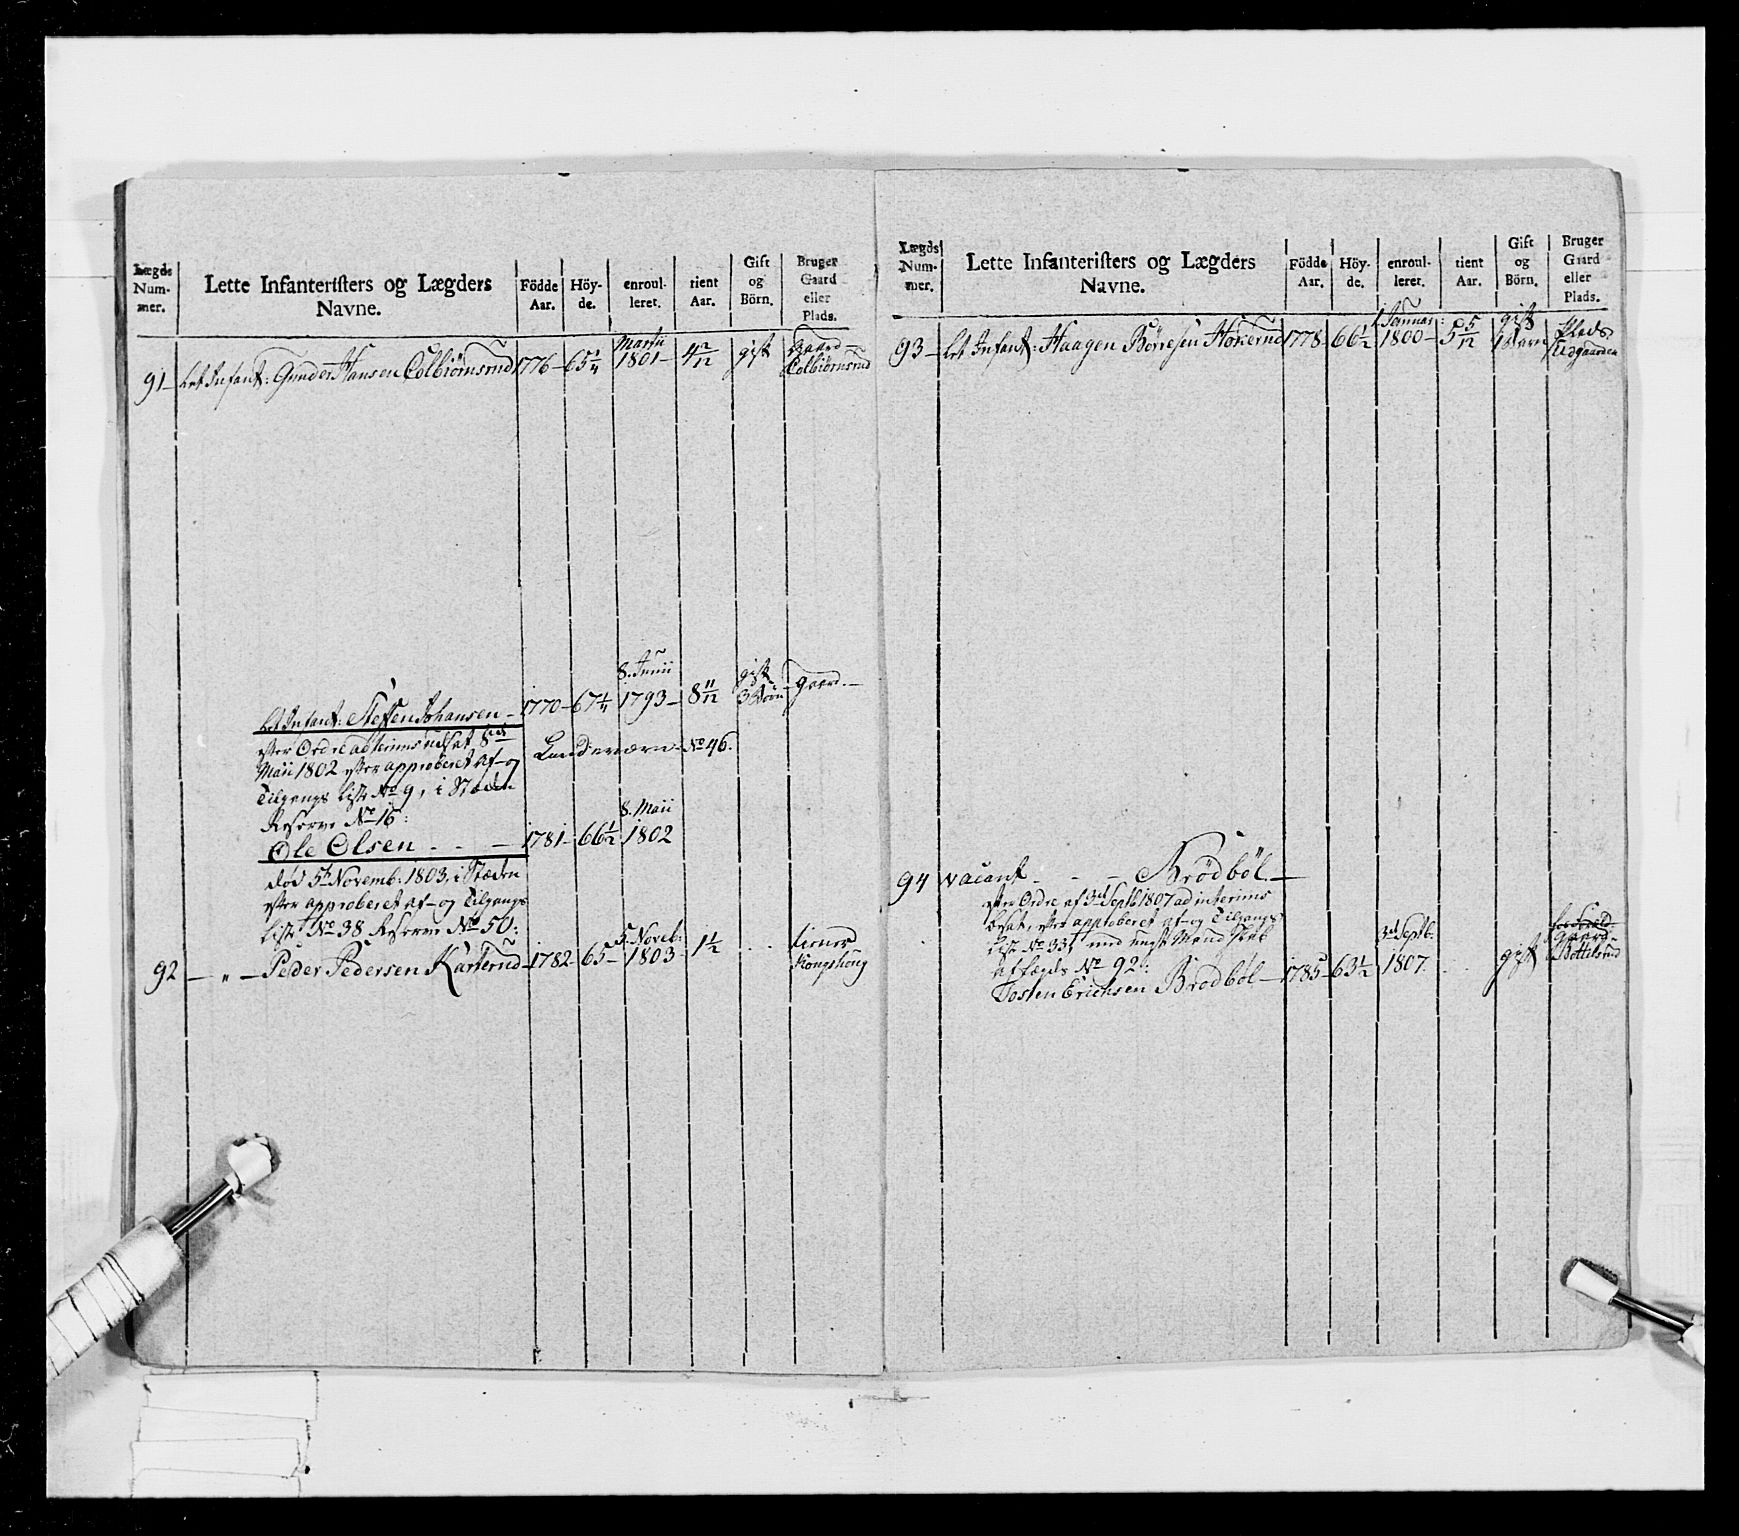 Lægds Num- mer. | Lette Infanteristers og Lægders Navne. | Födde Aar. | Höy- de. | enroul- leret. | tient Aar. | Gift og Börn. | Bruger Gaard eller Plads.
Martii
91 - Let Infant: Gunder Hansen Colbiörnsrud 1776 - 65 1/4 1801 - 4 2/12 gift Gaard - Colbiörnsrud
8. Junii
Let Infant: Steffen Johansen - 1770 - 67 1/4 1793 - 8 11/12 gift 3 Börn - Gaard. -
efter Ordre ad interims udsat 8de Landeværn No 46.
Maii 1802 efter approberet Af- og
Tilgangs Liste No 9, i Stæden
Reserve No 16:
8. Maii
Ole Olsen - - - 1781 - 66 1/2 1802
død 5te Novemb: 1803, i Stæden
efter approberet Af- og Tilgangs
Liste No 38 Reserve No 50:
5. Noveb:
92 - " - Peder Pedersen Karterud - 1782 - 65 - 1803 - 1 1/2 - - tiener Kongshoug
Lægds Num- mer. | Lette Infanteristers og Lægders Navne. | Födde Aar. | Höy- de. | enroul- leret. | tient Aar. | Gift og Börn. | Bruger Gaard eller Plads.
1 Januar:
93 - Let Infant: Haagen Börresen 1778 - 66 1/2 1800 - 5 5/12 gift 1 Barn Plads
94 vacant - - - Brödböl. -
efter Ordre af 3de Septb 1807 ad interims
besat, efter approberet af- og Tilgangs
Liste No 33, med Mandskab
No 92:
3de Septb:
Tosten Erichsen Brödböl - 1785 - 63 1/2 1807. - - gift Gaard Bottilsrud